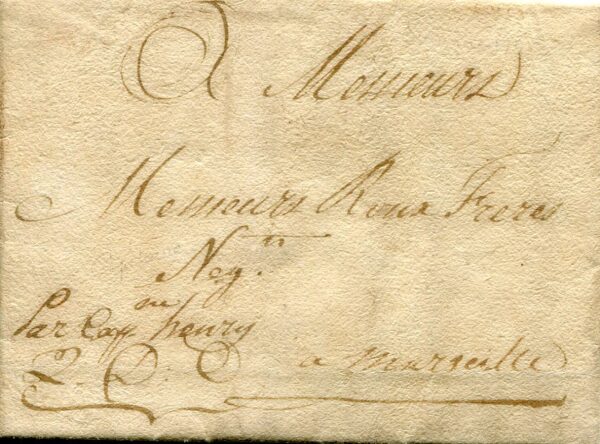 A Messieurs
Messieurs Roux Freres
Neg.ts
Par Capne henry
Q. D. C
a marseille